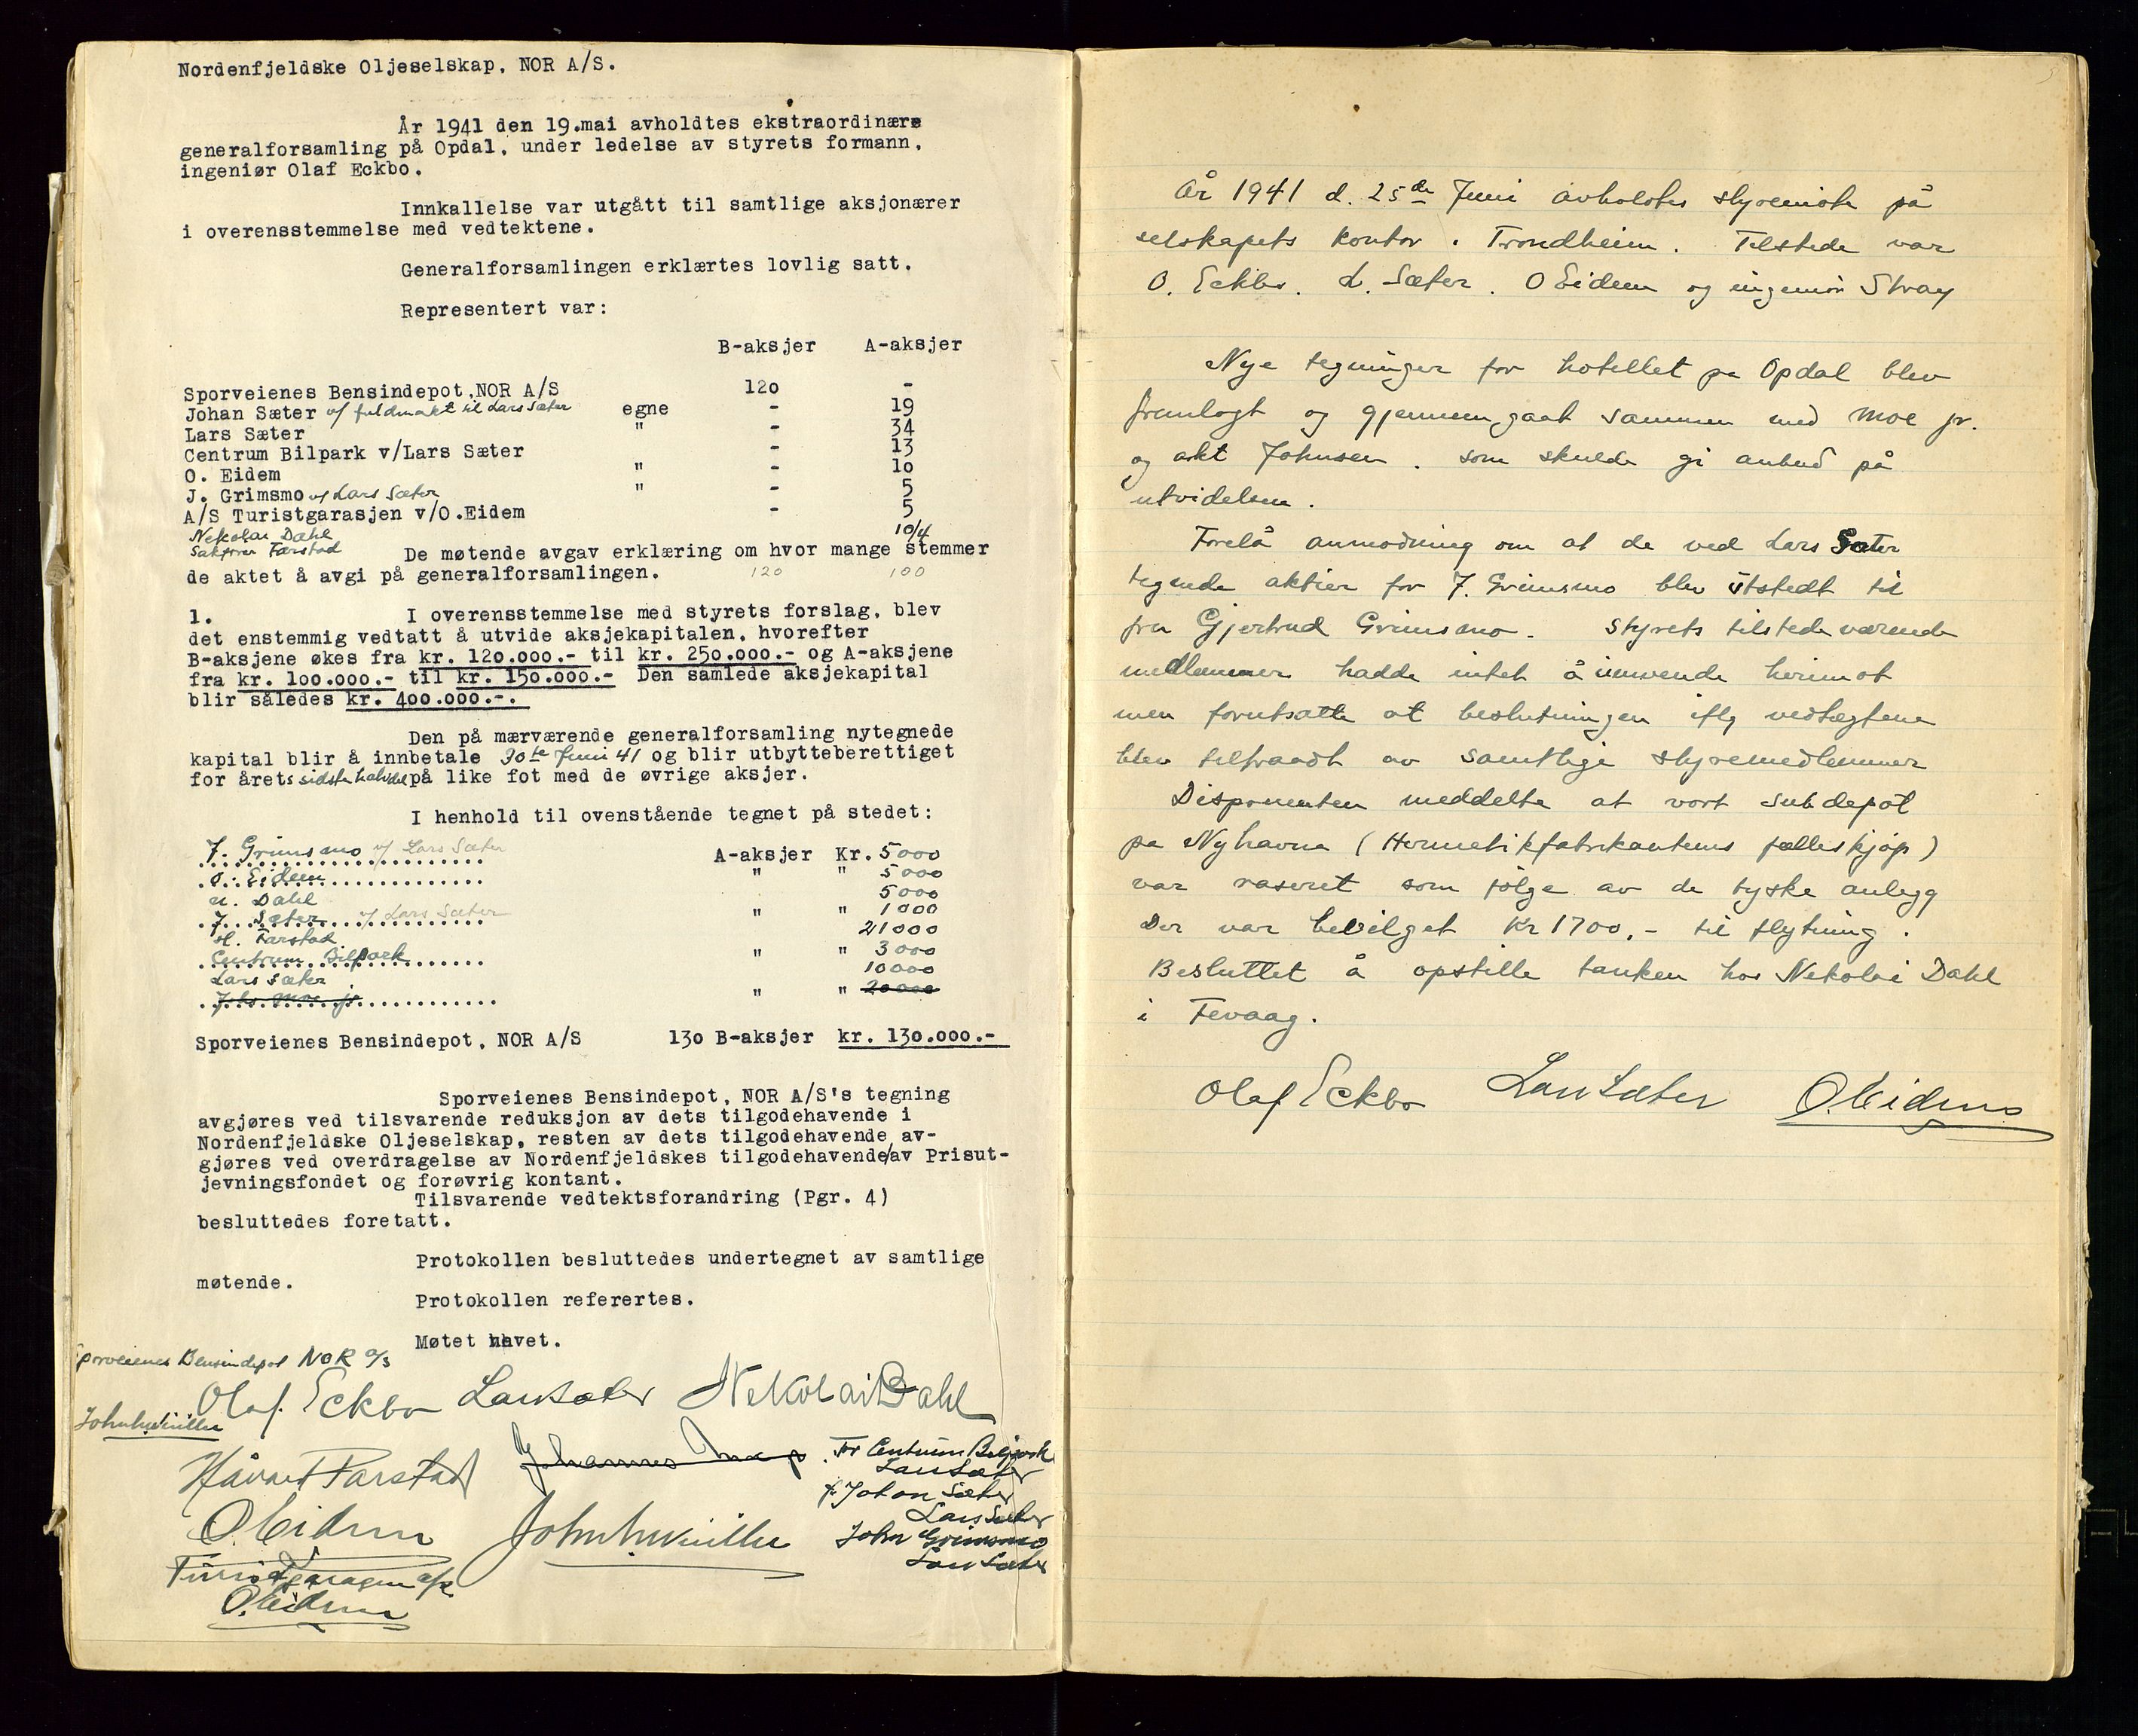 Nordenfjeldske Oljeselskap, NOR A/S.
År 1941 den 19.mai avholdtes ekstraordinære
generalforsamling på Opdal, under ledelse av styrets formann,
ingeniør Olaf Eckbo.
Innkallelse var utgått til samtlige aksjonærer
i overensstemmelse med vedtektene.
Generalforsamlingen erklærtes lovlig satt.
Representert var:
B-aksjer A-aksjer
Sporveienes Bensindepot,NOR A/S 120 -
Johan Sæter v/ fuldmakt til Lars Sæter egne - 19
Lars Sæter " - 34
Centrum Bilpark v/Lars Sæter - 13
O. Eidem " - 10
J. Grimsmo v/ Lars Sæter " - 5
A/S Turistgarasjen v/O.Eidem - 5
Nekolai Dahl 10/4
Sakfører Farstad
De møtende avgav erklæring om hvor mange stemmer
de aktet å avgi på generalforsamlingen. 120 100
1. I overensstemmelse med styrets forslag, blev
det enstemmig vedtatt å utvide aksjekapitalen, hvorefter
B-aksjene økes fra kr. 120.000.- til kr. 250.000.- og A-aksjene
fra kr. 100.000.- til kr. 150.000.- Den samlede aksjekapital
blir således kr. 400.000.-.
Den på mærværende generalforsamling nytegnede
kapital blir å innbetale 30te Juni 41 og blir utbytteberettiget
for årets sidste halvdel på like fot med de øvrige aksjer.
I henhold til ovenstående tegnet på stedet:
J. Grimsmo v/ Lars Sæter A-aksjer Kr. 5000
O. Eidem " " 5000
N. Dahl 5000
J. Sæter v/ Lars Sæter " " 1000
H. Farstad 21000
Centrum Bilpark " " 3000
Lars Sæter 10000
Johs. Moe jr " " 20000
Sporveienes Bensindepot, NOR A/S 130 B-aksjer kr. 130.000.-
Sporveienes Bensindepot, NOR A/S's tegning
avgjøres ved tilsvarende reduksjon av dets tilgodehavende i
Nordenfjeldske Oljeselskap, resten av dets tilgodehavende av-
gjøres ved overdragelse av Nordenfjeldskes tilgodehavende/av Prisut-
jevningsfondet og forøvrig kontant.
Tilsvarende vedtektsforandring (Pgr. 4)
besluttedes foretatt.
Protokollen besluttedes undertegnet av samtlige
møtende.
Protokollen referertes.
Møtet hevet.
Sporveienes Bensindepot NOR A/S
Olaf Eckbo Lars Sæter Nekolai Dahl
Håvard Farstad Johannes Moe jr. For Centrum Bilpark
Lars Sæter
f. Johan Sæter
Lars Sæter
O. Eidem John Grimsmo
Lars Sæter
Turistgaragen A/S
O. Eidem
År 1941 d. 25de Juni avholdtes styremøte på
selskapets kontor i Trondheim. Tilstede var
O. Eckbo. L. Sæter. O Eidem og ingeniør Stray
Nye tegninger for hotellet pa Opdal blev
fremlagt og gjennemgaat sammen med Moe jr.
og arkt Johnsen. som skulde gi anbud på
utvidelsen.
Forelå anmodning om at de ved Lars Sæter
tegnede aktier for J. Grimsmo blev utstedt til
fru Gjertrud Grimsmo. Styrets tilstedeværende
medlemmer hadde intet å innvende herimot
men forutsatte at beslutningen iflg vedtægtene
blev tiltraadt av samtlige styremedlemmer
Disponenten meddelte at vort subdepot
pa Nyhavna (Hermetikfabrikantenes fælleskjøp)
var raseret som følge av de tyske anlegg
Der var bevilget Kr 1700.- til flytning.
Besluttet å opstille tanken hos Nekolai Dahl
i Fevaag.
Olaf Eckbo Lars Sæter O. Eidem